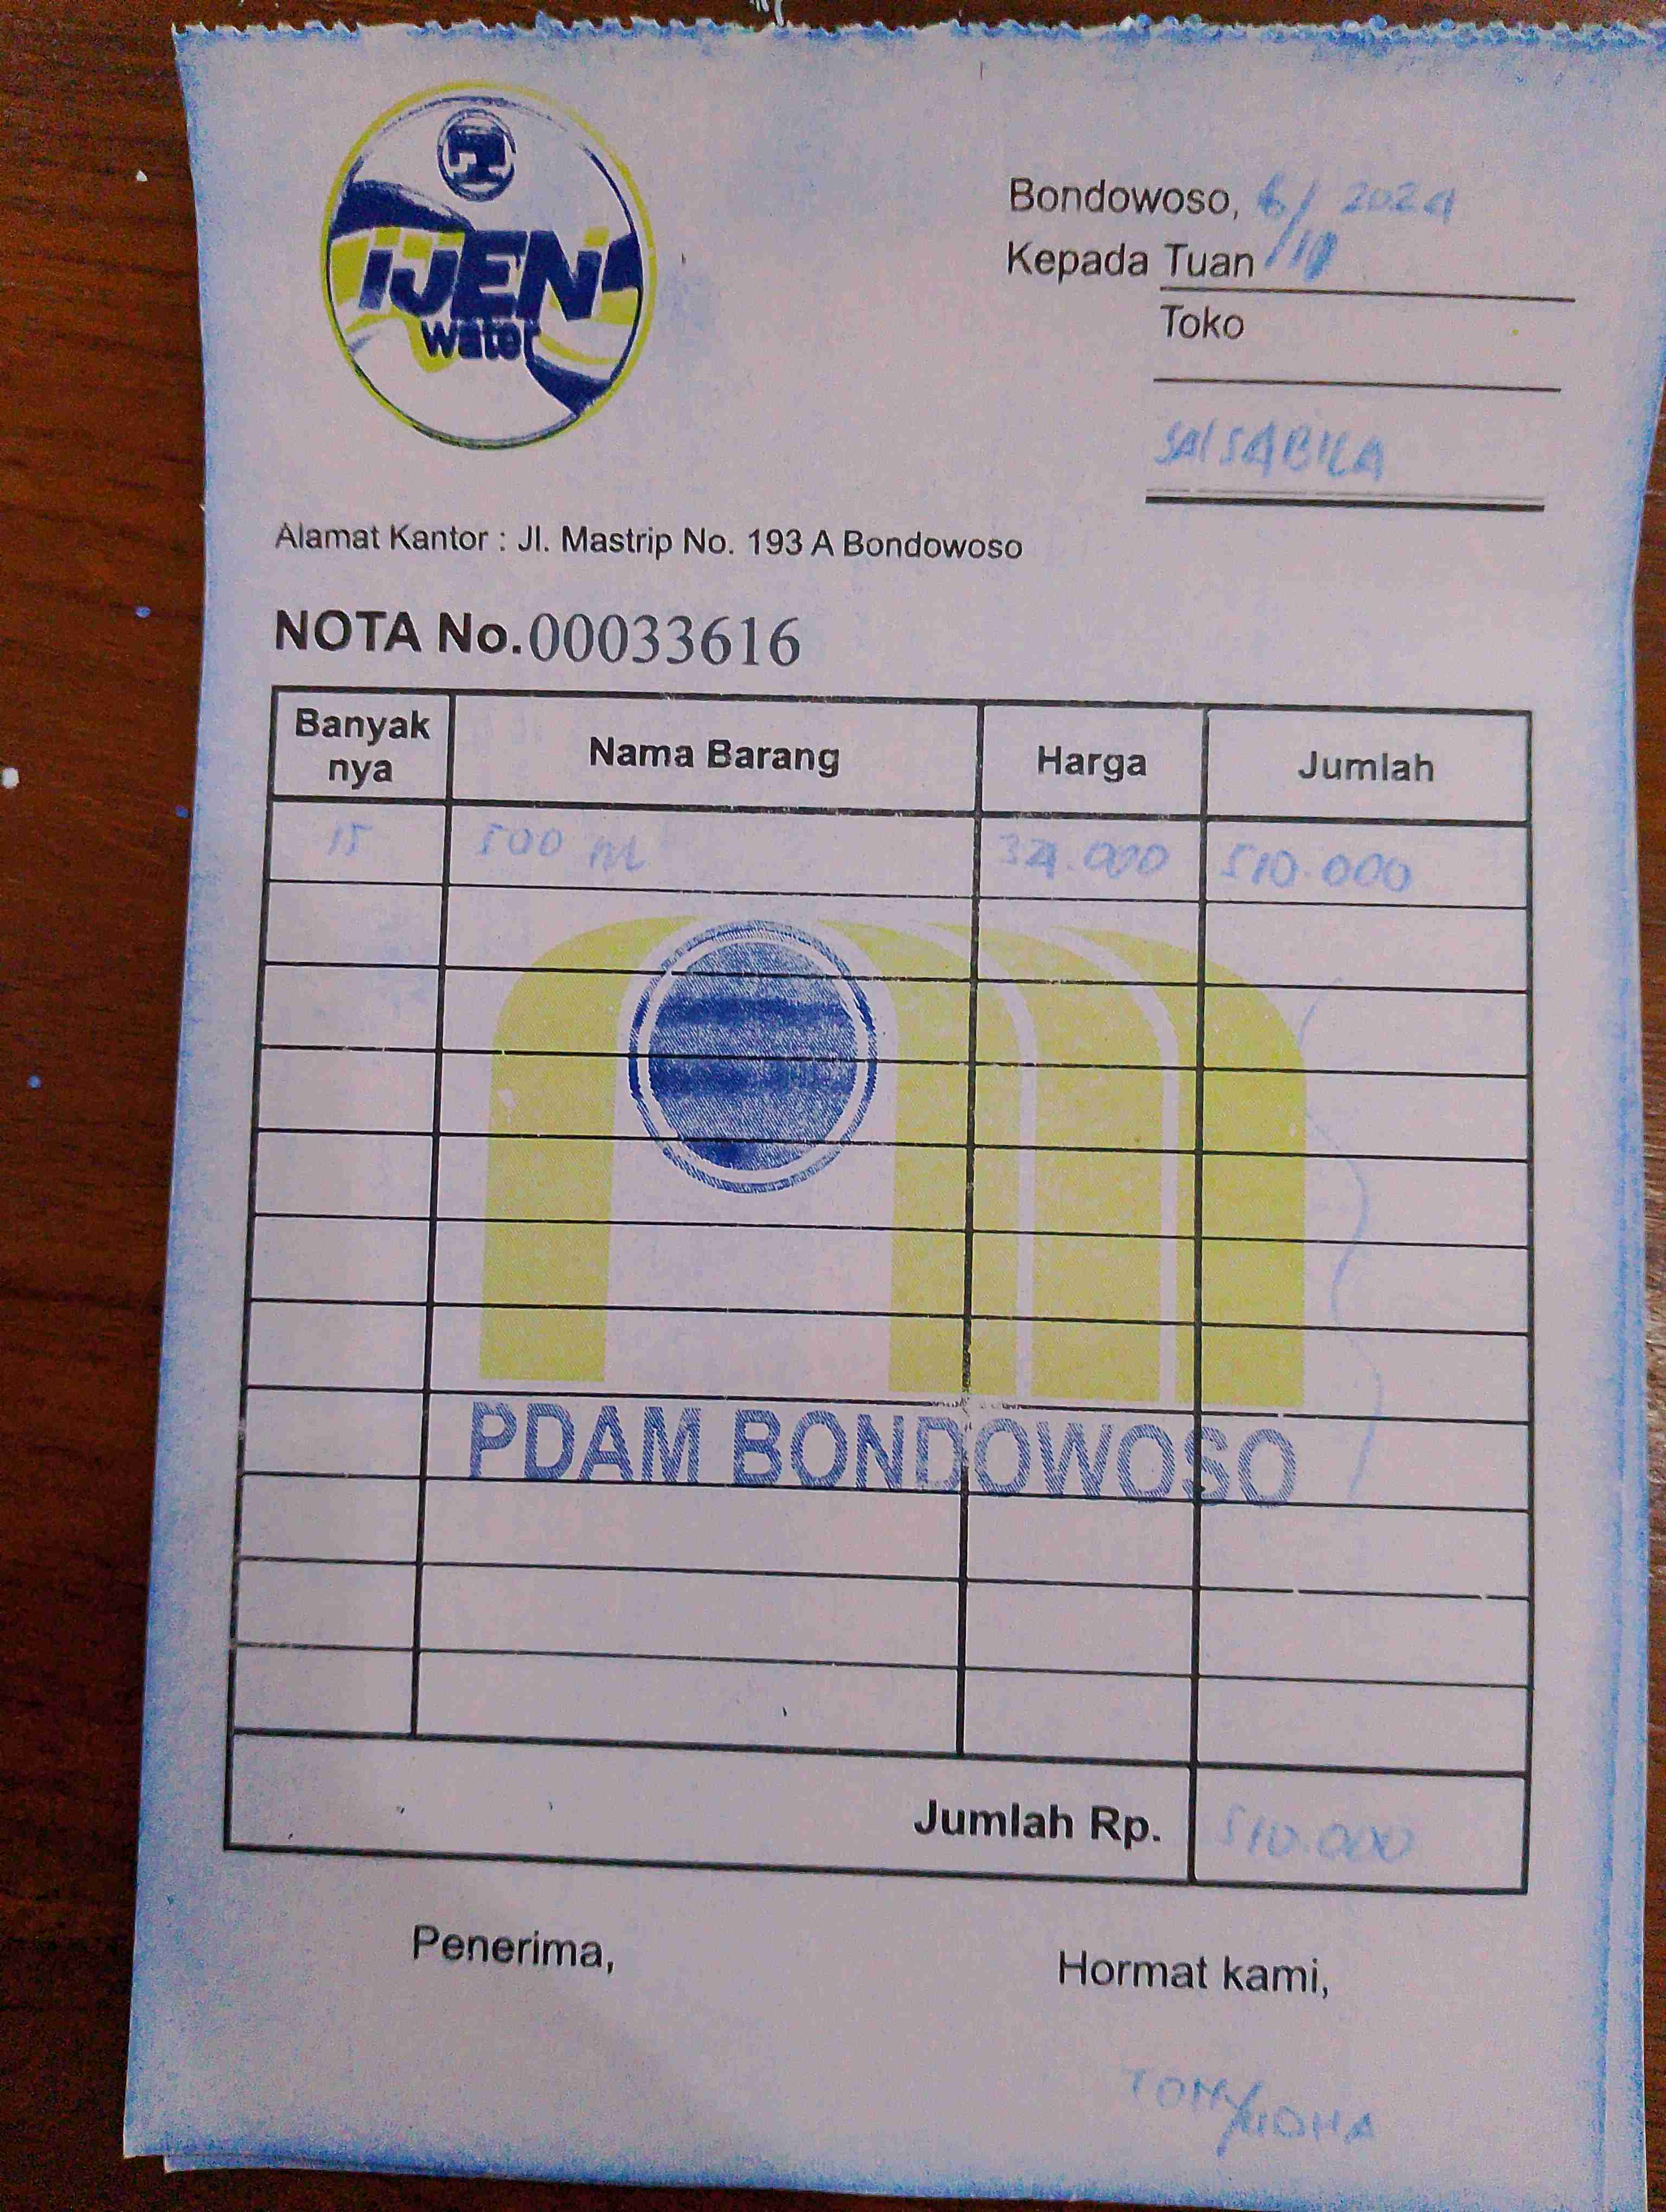 IJEN
water
Bondowoso, 6/10 2024
Kepada Tuan
Toko
SALSABILA
Alamat Kantor : Jl. Mastrip No. 193 A Bondowoso
NOTA No. 00033616
Banyak nya Nama Barang Harga Jumlah
15 500 ml 34.000 510.000
PDAM BONDOWOSO
Jumlah Rp. 510.000
Penerima, Hormat kami,
TOMY